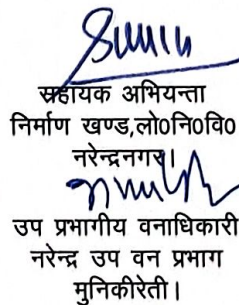 सहायक अभियन्ता
निर्माण खण्ड,लो0नि0वि0
नरेन्द्रनगर।
उप प्रभागीय वनाधिकारी
नरेन्द्र उप वन प्रभाग
मुनिकीरेती।